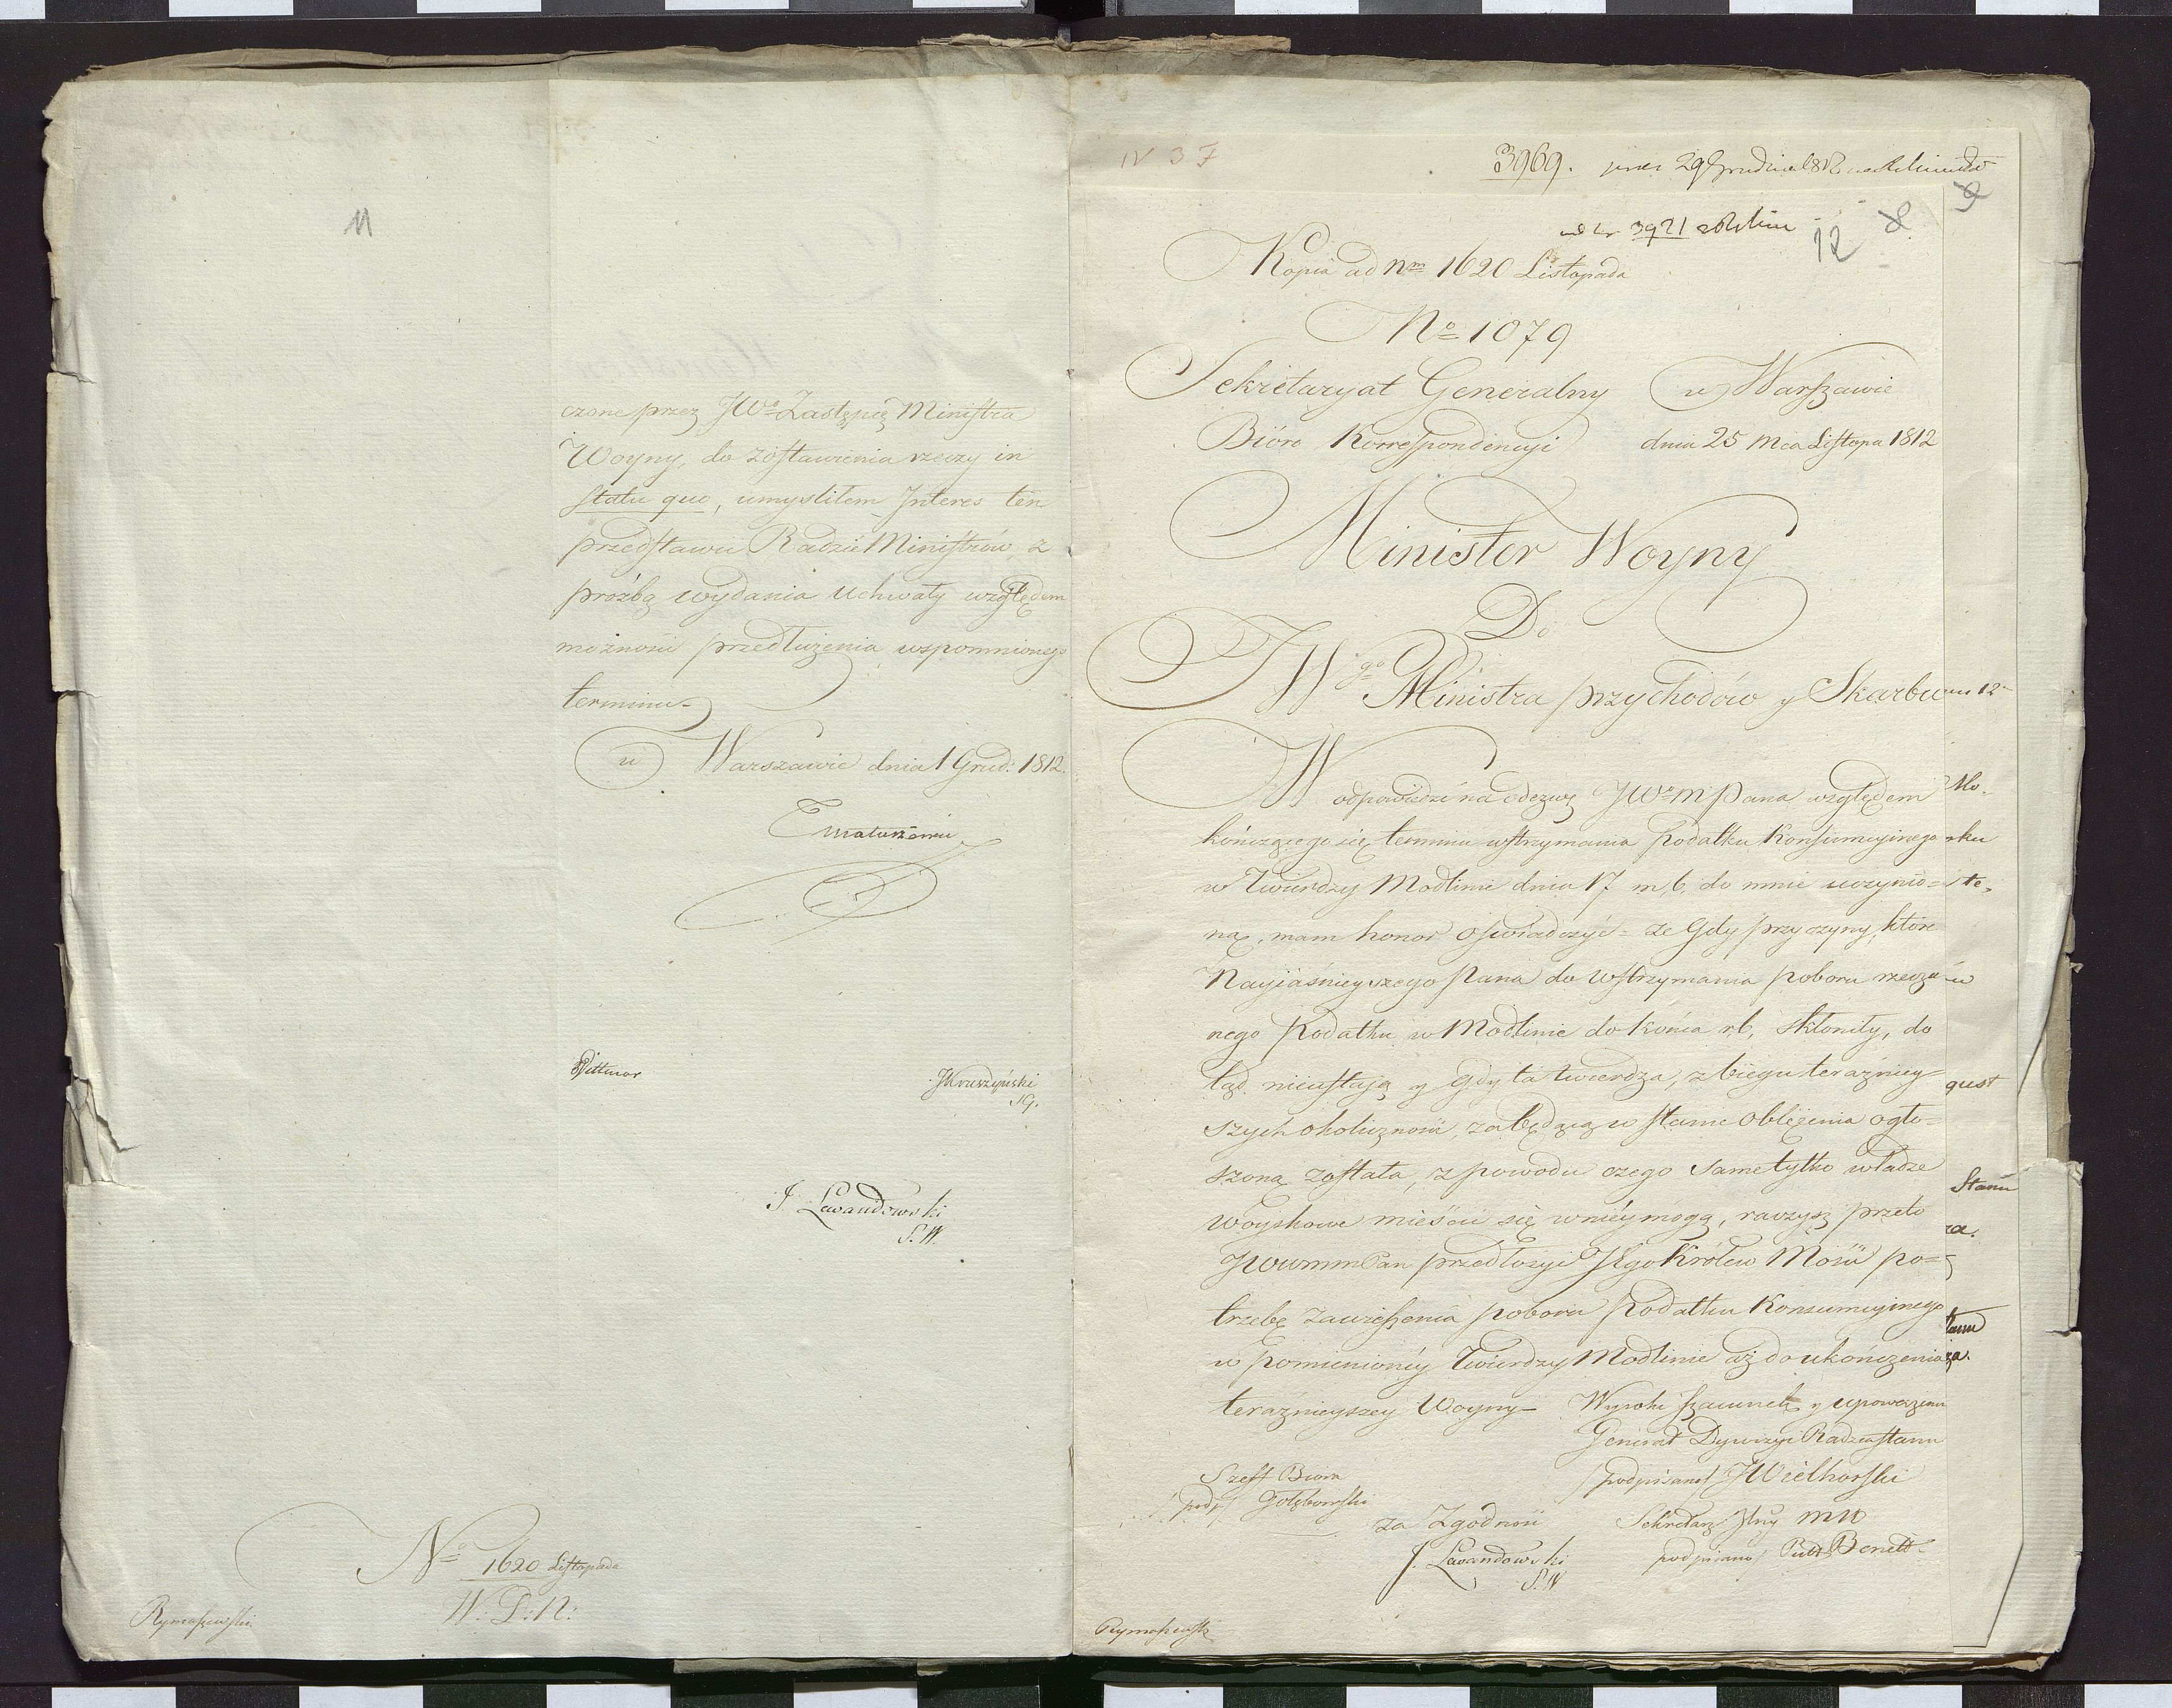 11
czone przez JWo Zastępcę Ministra
Woyny, do zostawienia rzeczy in
statu quo, umyśliłem Interes ten
przedstawić Radzie Ministrów z
prożbą wydania Uchwały względem
możności przedłużenia wspomnionego
terminu
w Warszawie dnia 1 Grud: 1812.
Dittmar
JKruszyński
SG.
J. Lewandowski
S. W.
No 1620 Listopada
W: D: N:
Rymaszewski
IV 3 7
3969. 29 Grudnia 1812
9
3921
12 8
Kopia ad Nm 1620 Listopada
No 1079
Sekretaryat Generalny w Warszawie
Bióro Korrespondencyi dnia 25 Mca Listopa 1812
Minister Woyny
Do
JWgo Ministra przychodów y Skarbu
W odpowiedzi na odezwę JWo m Pana względem
kończącego się terminu wstrzymania Podatku Konsumcyinego
w Twierdzy Modlinie dnia 17 m. b. do mnie uczynio=
ną, mam honor oświadczyć = że Gdy przyczyny, które
Nayiaśnieyszego Pana do wstrzymania poboru rzeczo
nego Podatku w Modlinie do końca r. b. skłoniły, do
tąd nieustaią y gdy ta twierdza, z biegu teraźniey=
szych okoliczności, za będącą w stanie oblężenia ogło=
szoną została, z powodu czego same tylko władze
woyskowe mieścić się w niéy mogą, raczysz przeto
JWWmm Pan przedłożyć JKgo Królew Mości po=
trzebę zawieszenia poboru Podatku Konsumcyinego
w pomienionéy Twierdzy Modlinie aż do ukończenia
teraźnieyszey Woyny = Wysoki szacunek y upoważnienia
Generał Dywizyi Radzca Stanu
podpisano/ JWielhorski
Szeff Biora
/podp/ Gołębowski
Sekretarz Jlny MW
podpisano/ Bennett
za Zgodność
J. Lewandowski
S. W
Rymaszewski
gust
Stanu
ra.